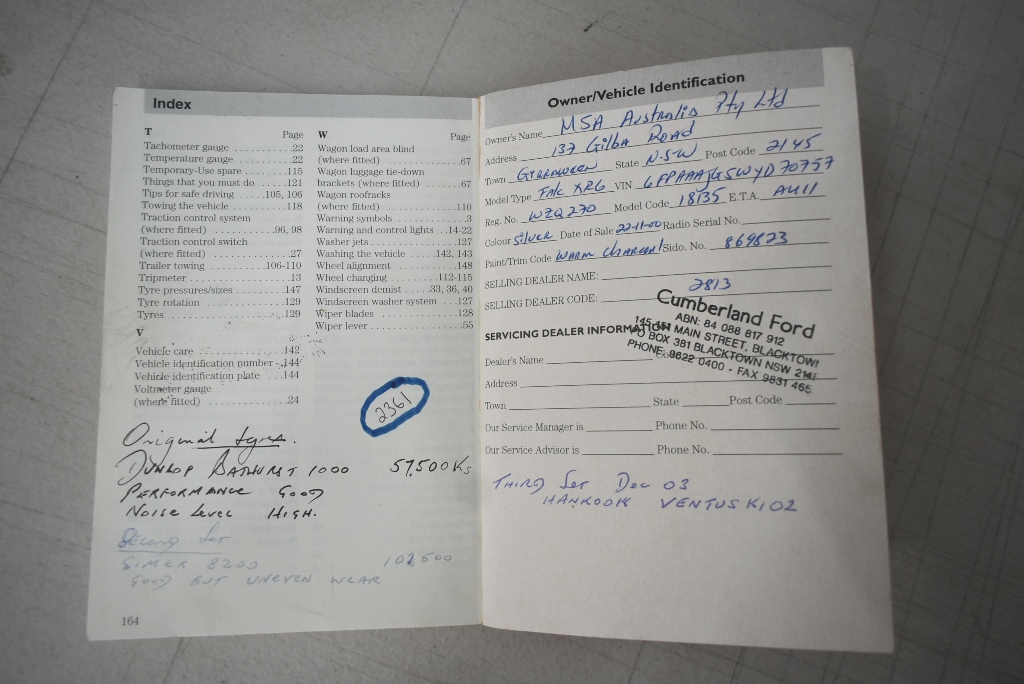 Index
T Page
Tachometer gauge ............22
Temperature gauge ..........22
Temporary-Use spare .......115
Things that you must do .....121
Tips for safe driving .....105, 106
Towing the vehicle ..........118
Traction control system
(where fitted) ............96, 98
Traction control switch
(where fitted) ..............27
Trailer towing ..........106-110
Tripmeter ..................13
Tyre pressures/sizes ........147
Tyre rotation ..............129
Tyres .....................129
V
Vehicle care ...............142
Vehicle identification number ..144
Vehicle identification plate ...144
Voltmeter gauge
(where fitted) ..............24
W Page
Wagon load area blind
(where fitted) ..............67
Wagon luggage tie-down
brackets (where fitted) .......67
Wagon roofracks
(where fitted) .............110
Warning symbols .............3
Warning and control lights ..14-22
Washer jets ................127
Washing the vehicle .....142, 143
Wheel alignment ............148
Wheel changing .........112-115
Windscreen demist ....33, 36, 40
Windscreen washer system ..127
Wiper blades ...............128
Wiper lever .................55
2361
Original tyres.
DUNLOP BATHURST 1000 57,500 Ks
PERFORMANCE GOOD
NOISE LEVEL HIGH.
SECOND SET
SIMEX 8200 102,500
GOOD BUT UNEVEN WEAR
164
Owner/Vehicle Identification
Owner's Name MSA Australia Pty Ltd
Address 137 Gilba Road
Town Girraween State N.S.W Post Code 2145
Model Type FALC XR6 VIN 6FPAAAJGSWYD70757
Reg. No. WZQ 270 Model Code 18135 E.T.A. AU11
Colour Silver Date of Sale 22-11-00 Radio Serial No.
Paint/Trim Code Warm Charcoal Sido. No. 869823
SELLING DEALER NAME:
SELLING DEALER CODE: 2813
Cumberland Ford
ABN: 84 088 817 912
MAIN STREET, BLACKTOWN
PO BOX 381 BLACKTOWN NSW
PHONE: 9622 0400 • FAX 9831 465
SERVICING DEALER INFORMATION
Dealer's Name
Address
Town State Post Code
Our Service Manager is Phone No.
Our Service Advisor is Phone No.
THIRD SET DEC 03
HANKOOK VENTUS K102